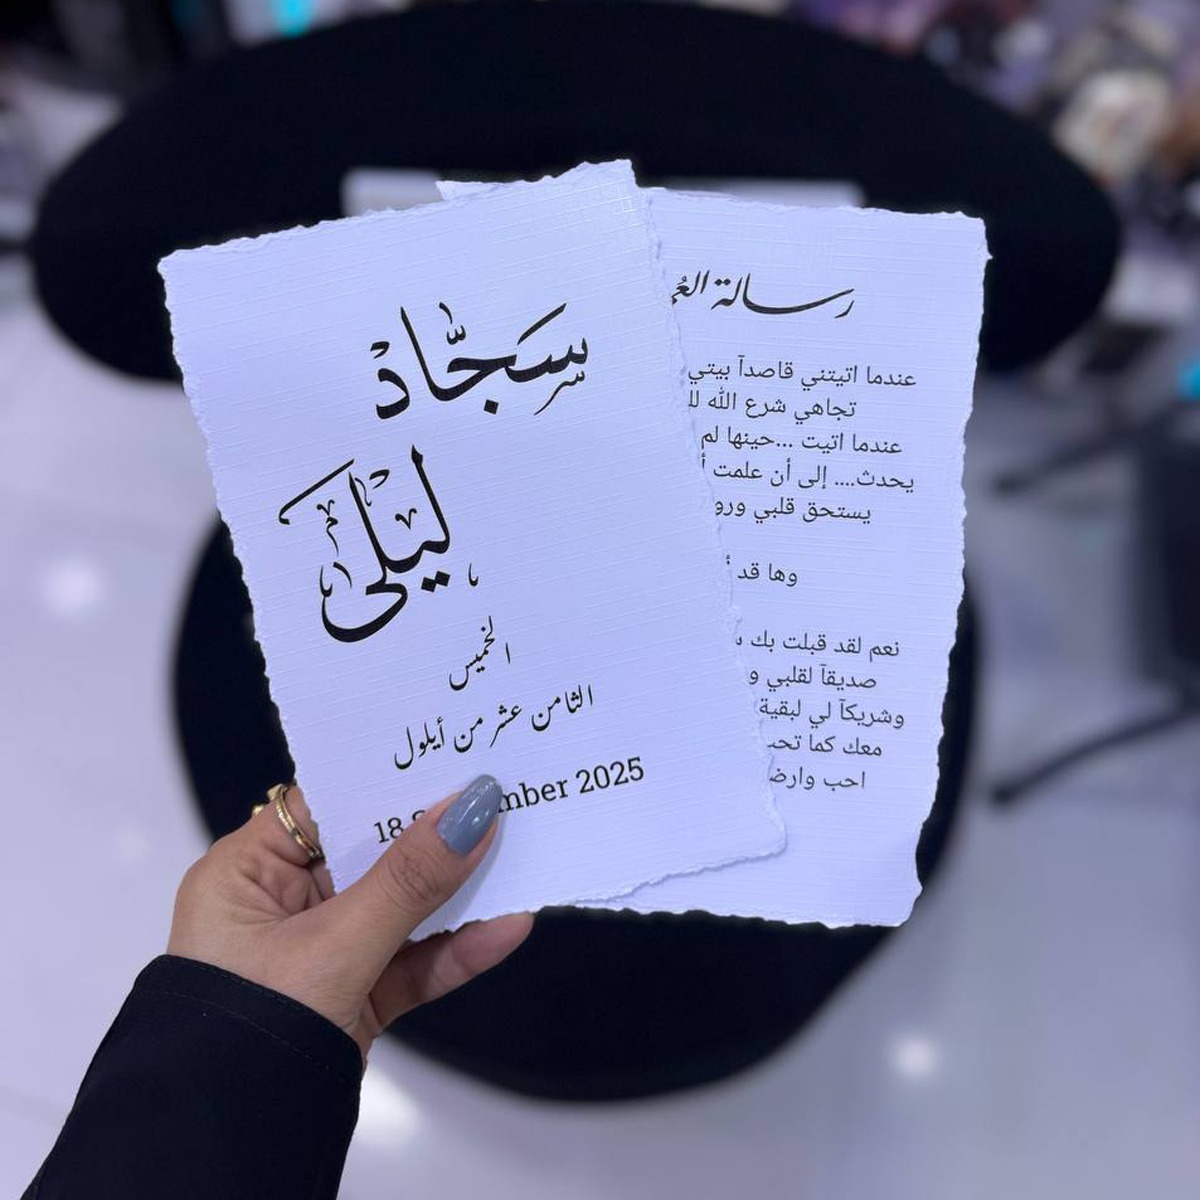 سَجَّادْ
لَيْلَى
الخميس
الثامن عشر من أيلول
18 mber 2025
رسالة
عندما اتيتني قاصدآ بيتي
تجاهي شرع الله
عندما اتيت ...حينها لم
يحدث.... إلى أن علمت
يستحق قلبي
وها قد
نعم لقد قبلت بك
صديقآ لقلبي
وشريكآ لي لبقية
معك كما
احب